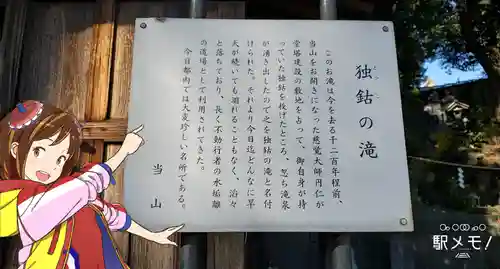 独鈷の滝
このお滝は今を去る千二百年程前、
当山をお開きになった慈覚大師円仁が
堂塔建設の敷地を占って、御自身が持
っていた独鈷を投げたところ、忽ち滝泉
が湧き出したので之を独鈷の滝と名付
けられた。それより今日迄どんなに旱
天が続いても涸れることもなく、滔々
と落ちており、長く不動行者の水垢離
の道場として利用されてきた。
今日都内では大変珍しい名所である。
当山
駅メモ!